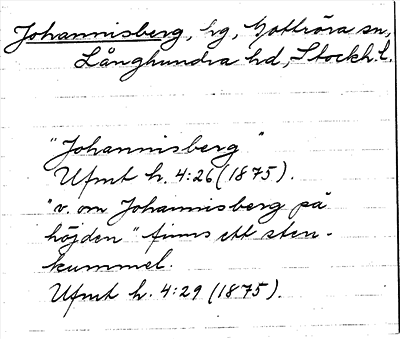 Johannisberg, lg, Gottröra sn,
Långhundra hd, Stockh. l.
"Johannisberg"
Ufmt h. 4:26 (1875).
"v. om Johannisberg på
höjden" finns ett sten-
kummel.
Ufmt h. 4:29 (1875).